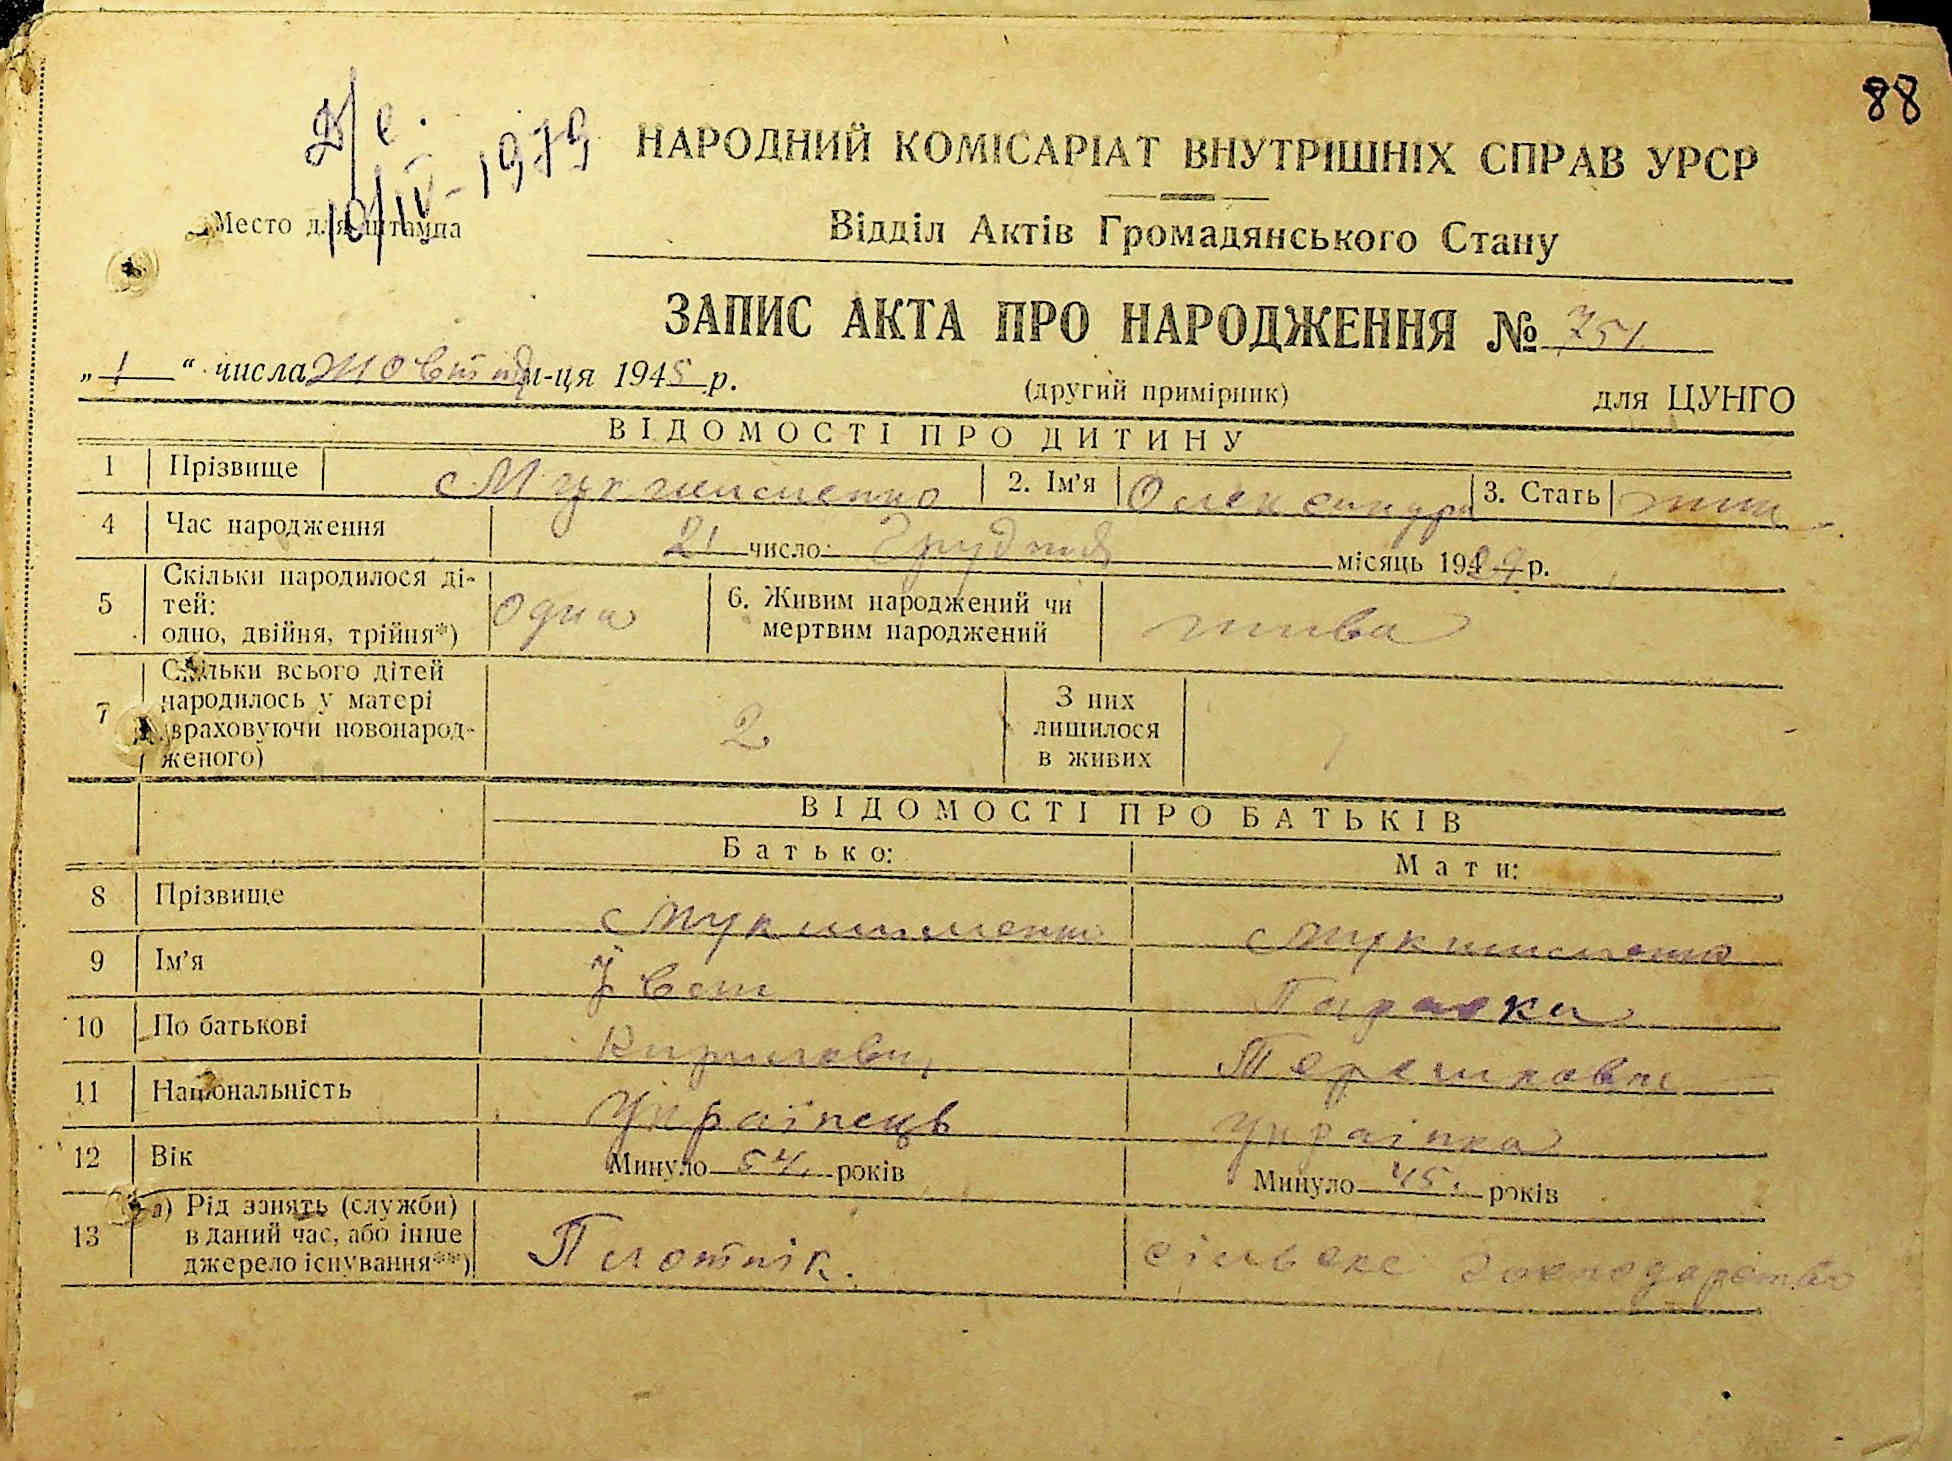 88
10/IV-1979
НАРОДНИЙ КОМІСАРІАТ ВНУТРІШНІХ СПРАВ УРСР
Место для штампа
Відділ Актів Громадянського Стану
ЗАПИС АКТА ПРО НАРОДЖЕННЯ № 751
„ 1 “ числа Жовтня м-ця 1945 р.
(другий примірник) для ЦУНГО
ВІДОМОСТІ ПРО ДИТИНУ
1 Прізвище 2. Ім'я Олександра 3. Стать жін
4 Час народження 21 число Грудня місяць 1929 р.
5 Скільки народилося ді-
тей:
одно, двійня, трійня*) одна
6. Живим народжений чи
мертвим народжений жива
7 Скільки всього дітей
народилось у матері
(враховуючи новонарод-
женого) 2
З них
лишилося
в живих 1
ВІДОМОСТІ ПРО БАТЬКІВ
Батько: Мати:
8 Прізвище
9 Ім'я Іван Параска
10 По батькові Кирилович Терешковна
11 Національність Українець Українка
12 Вік Минуло 54 років Минуло 45 років
13 а) Рід занять (служби)
в даний час, або інше
джерело існування**) Плотнік. сільське господарство